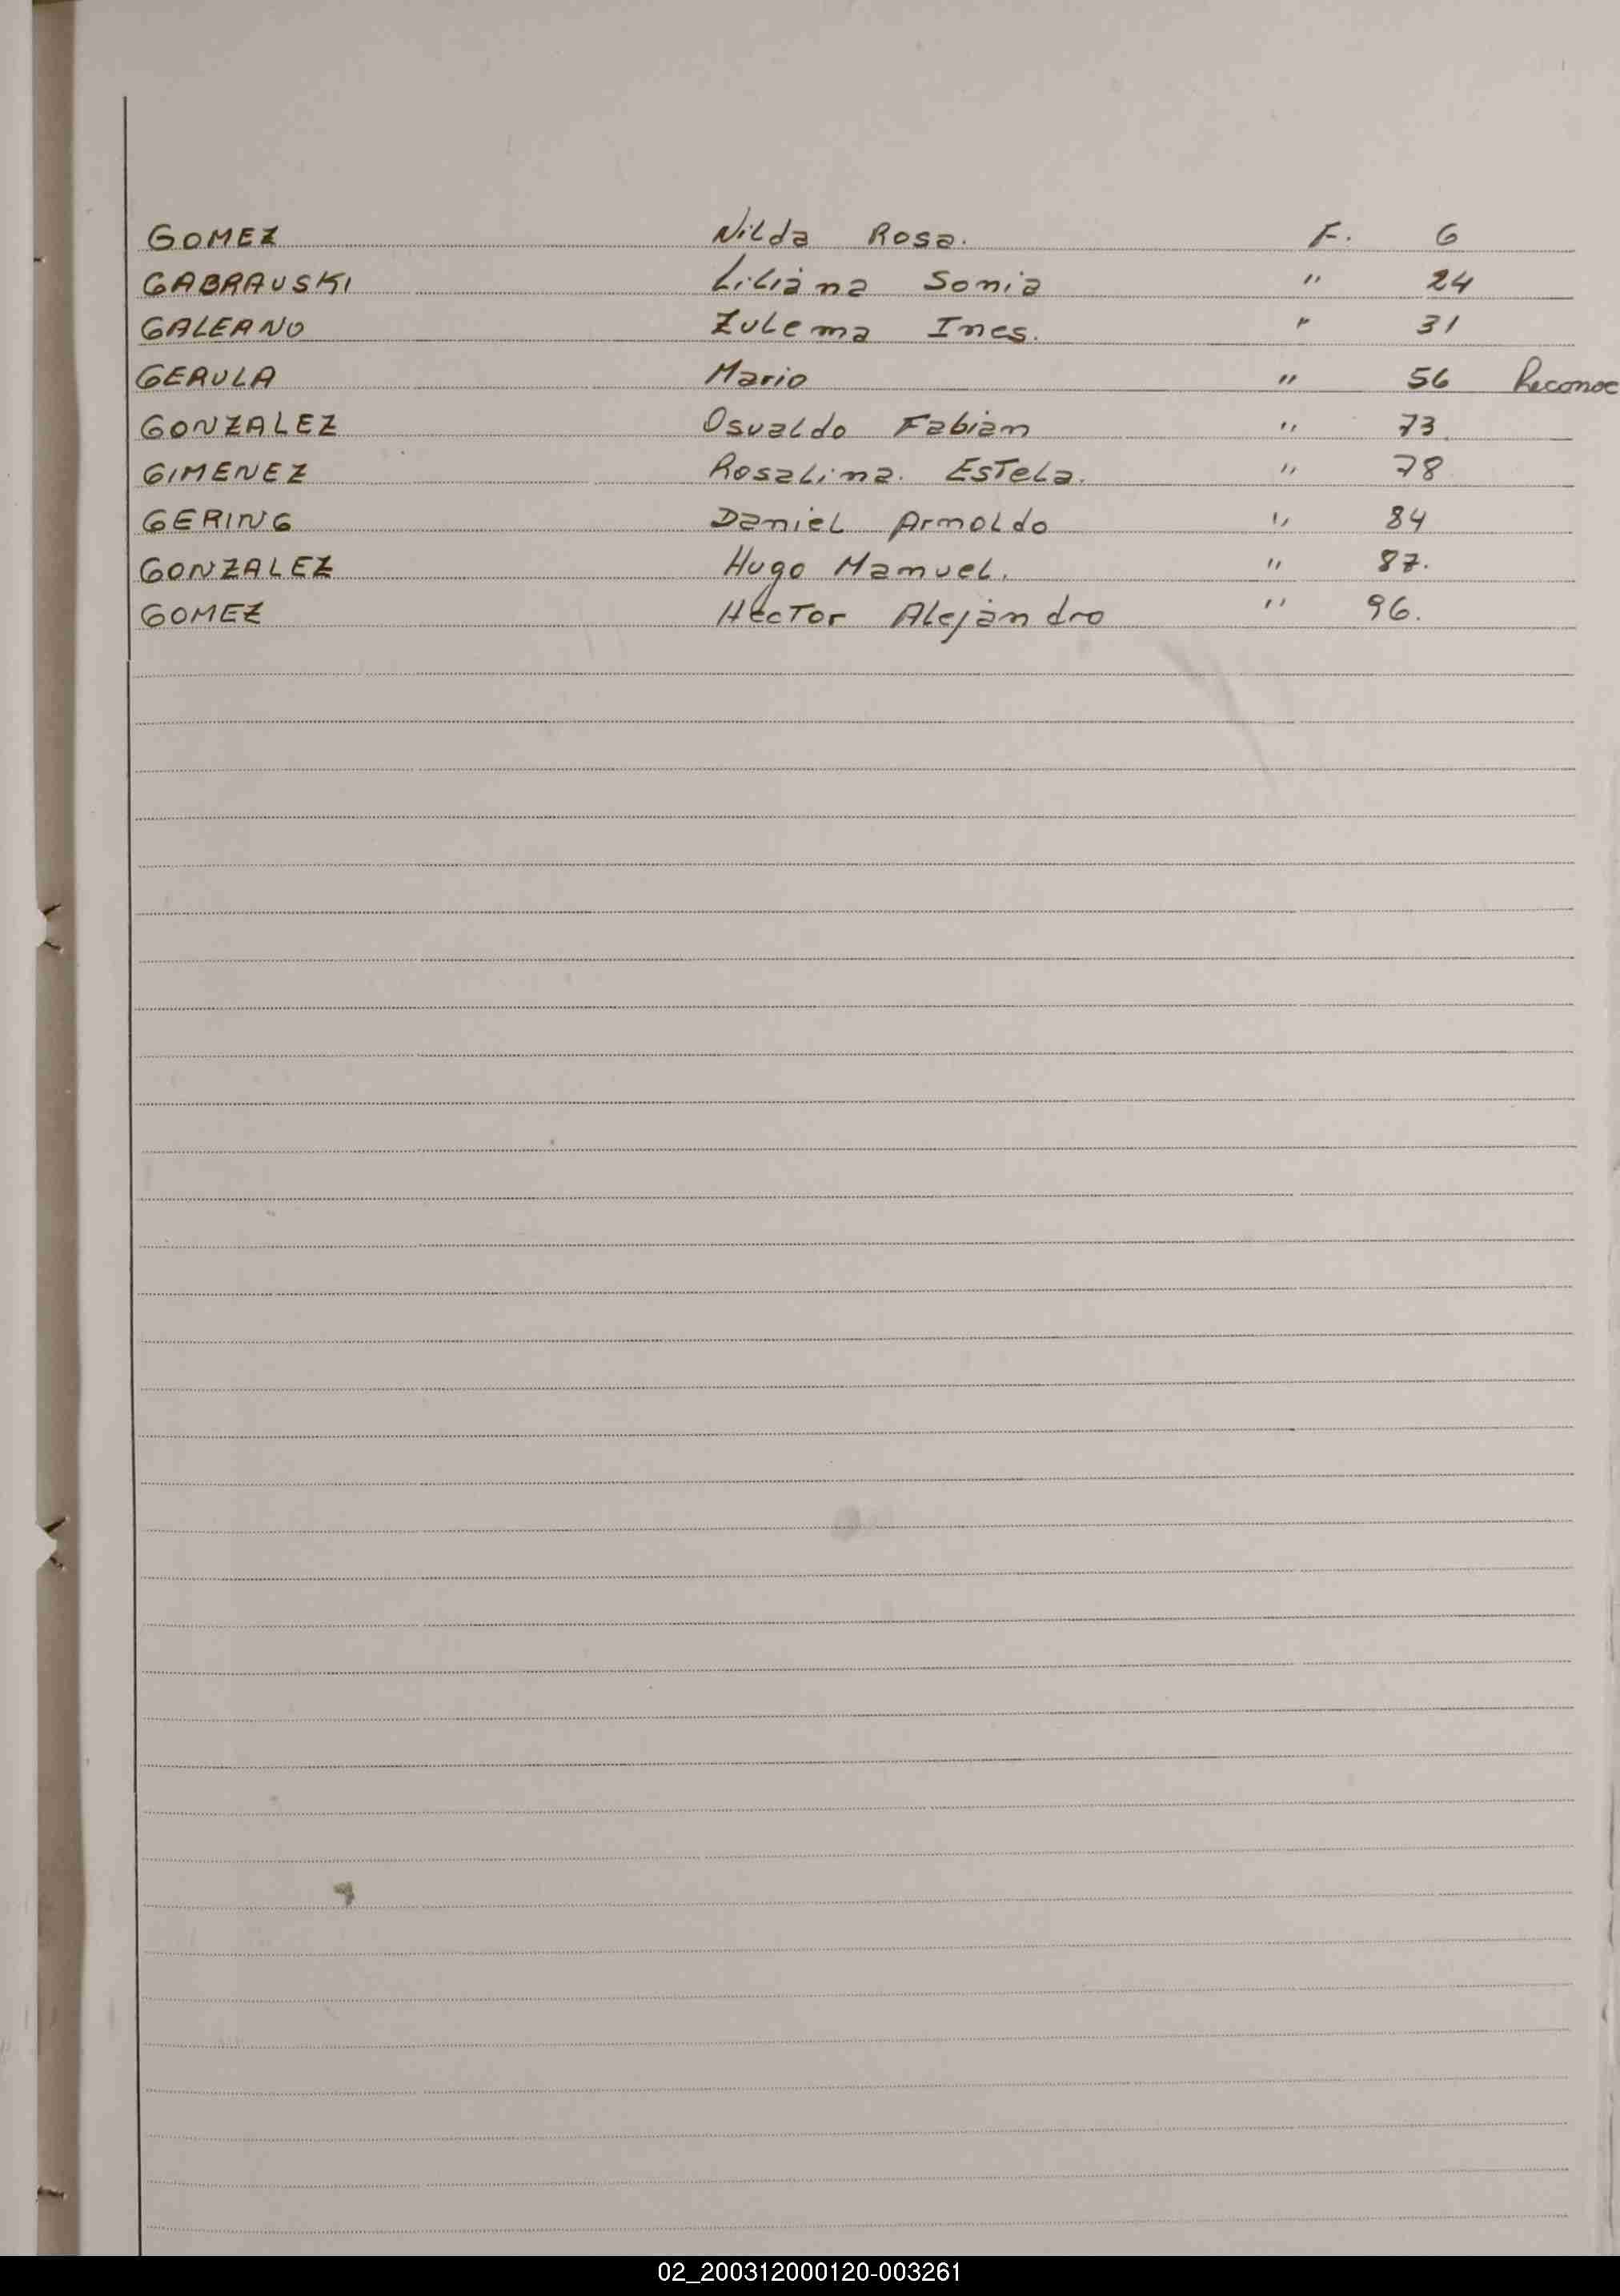 GOMEZ Nilda Rosa. F. 6
GABRAUSKI Liliana Sonia " 24
GALEANO Zulema Ines. " 31
GERULA Mario " 56 Reconoc
GONZALEZ Osvaldo Fabian " 73.
GIMENEZ Rosalina. Estela. " 78
GERING Daniel Arnoldo " 84
GONZALEZ Hugo Manuel. " 87.
GOMEZ Hector Alejandro " 96.
02_200312000120-003261